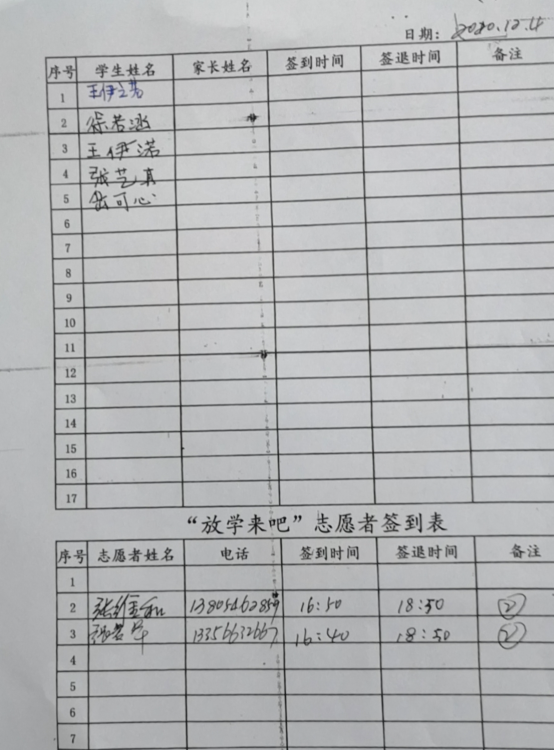 日期: 2020.12.4
序号 学生姓名 家长姓名 签到时间 签退时间 备注
1 王伊诺
2 徐若涵
3 王伊诺
4 张艺真
5 岳可心
6
7
8
9
10
11
12
13
14
15
16
17
“放学来吧”志愿者签到表
序号 志愿者姓名 电话 签到时间 签退时间 备注
1
2 16:50 18:50 ②
3 16:40 18:50 ②
4
5
6
7